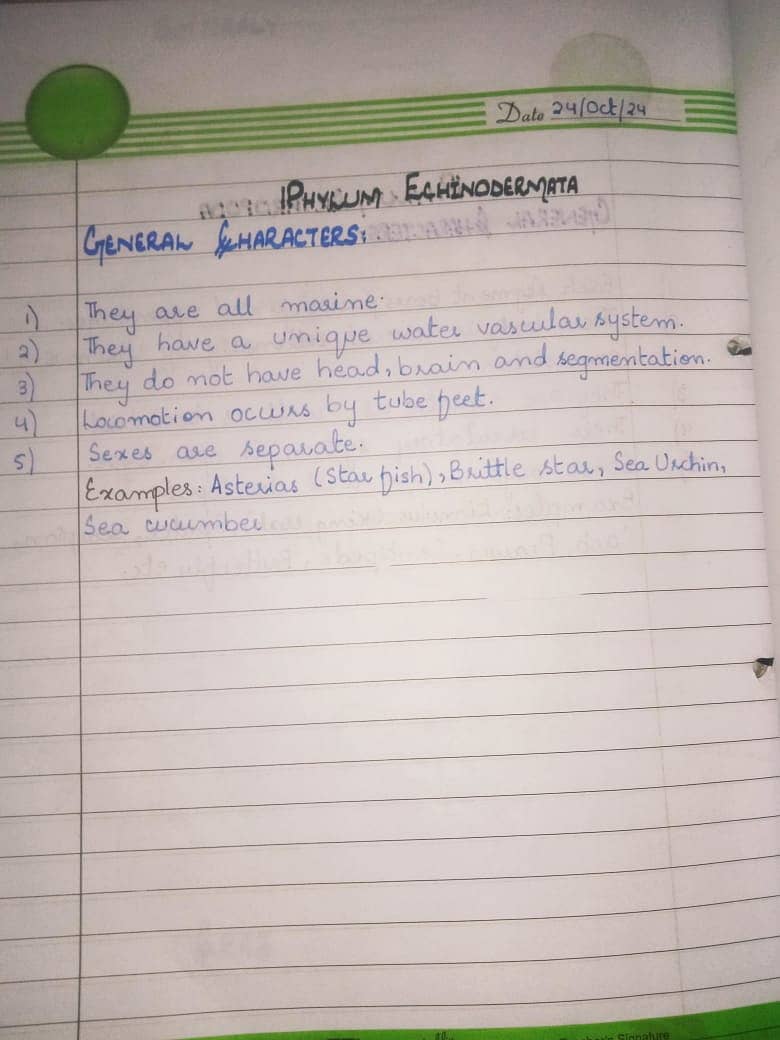 Date 24/Oct/24
PHYLUM ECHINODERMATA
GENERAL CHARACTERS:
1) They are all marine.
2) They have a unique water vascular system.
3) They do not have head, brain and segmentation.
4) Locomotion occurs by tube feet.
5) Sexes are separate.
Examples: Asterias (Star fish), Brittle star, Sea Urchin,
Sea cucumber
Signature